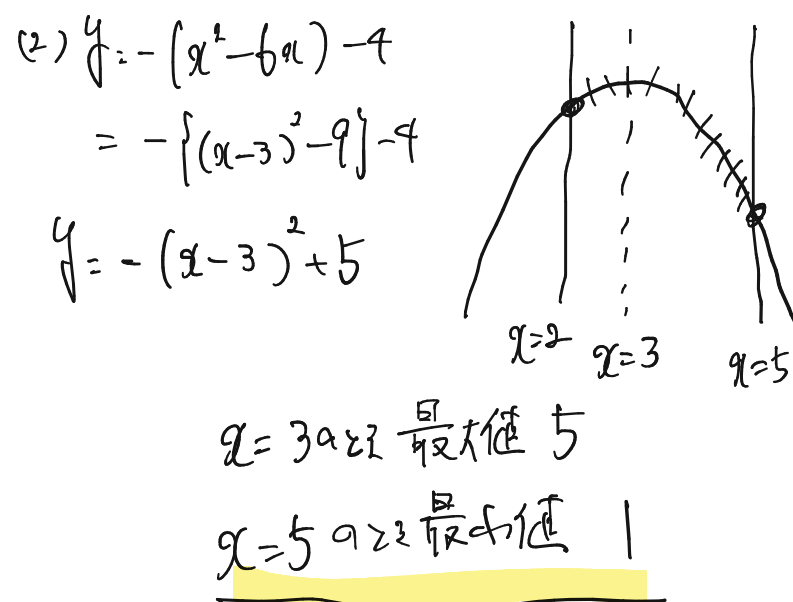 (2) y = -(x²-6x)-4
= -{(x-3)²-9}-4
y = -(x-3)²+5
x=2
x=3
x=5
x=3のとき最大値 5
x=5のとき最小値 1